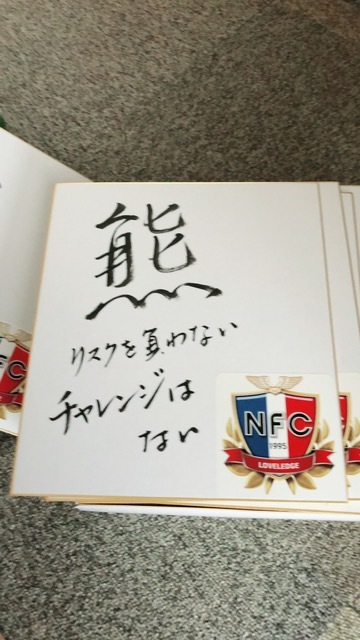 熊
リスクを負わない
チャレンジは
ない
NFC
1995
LOVELEDGE